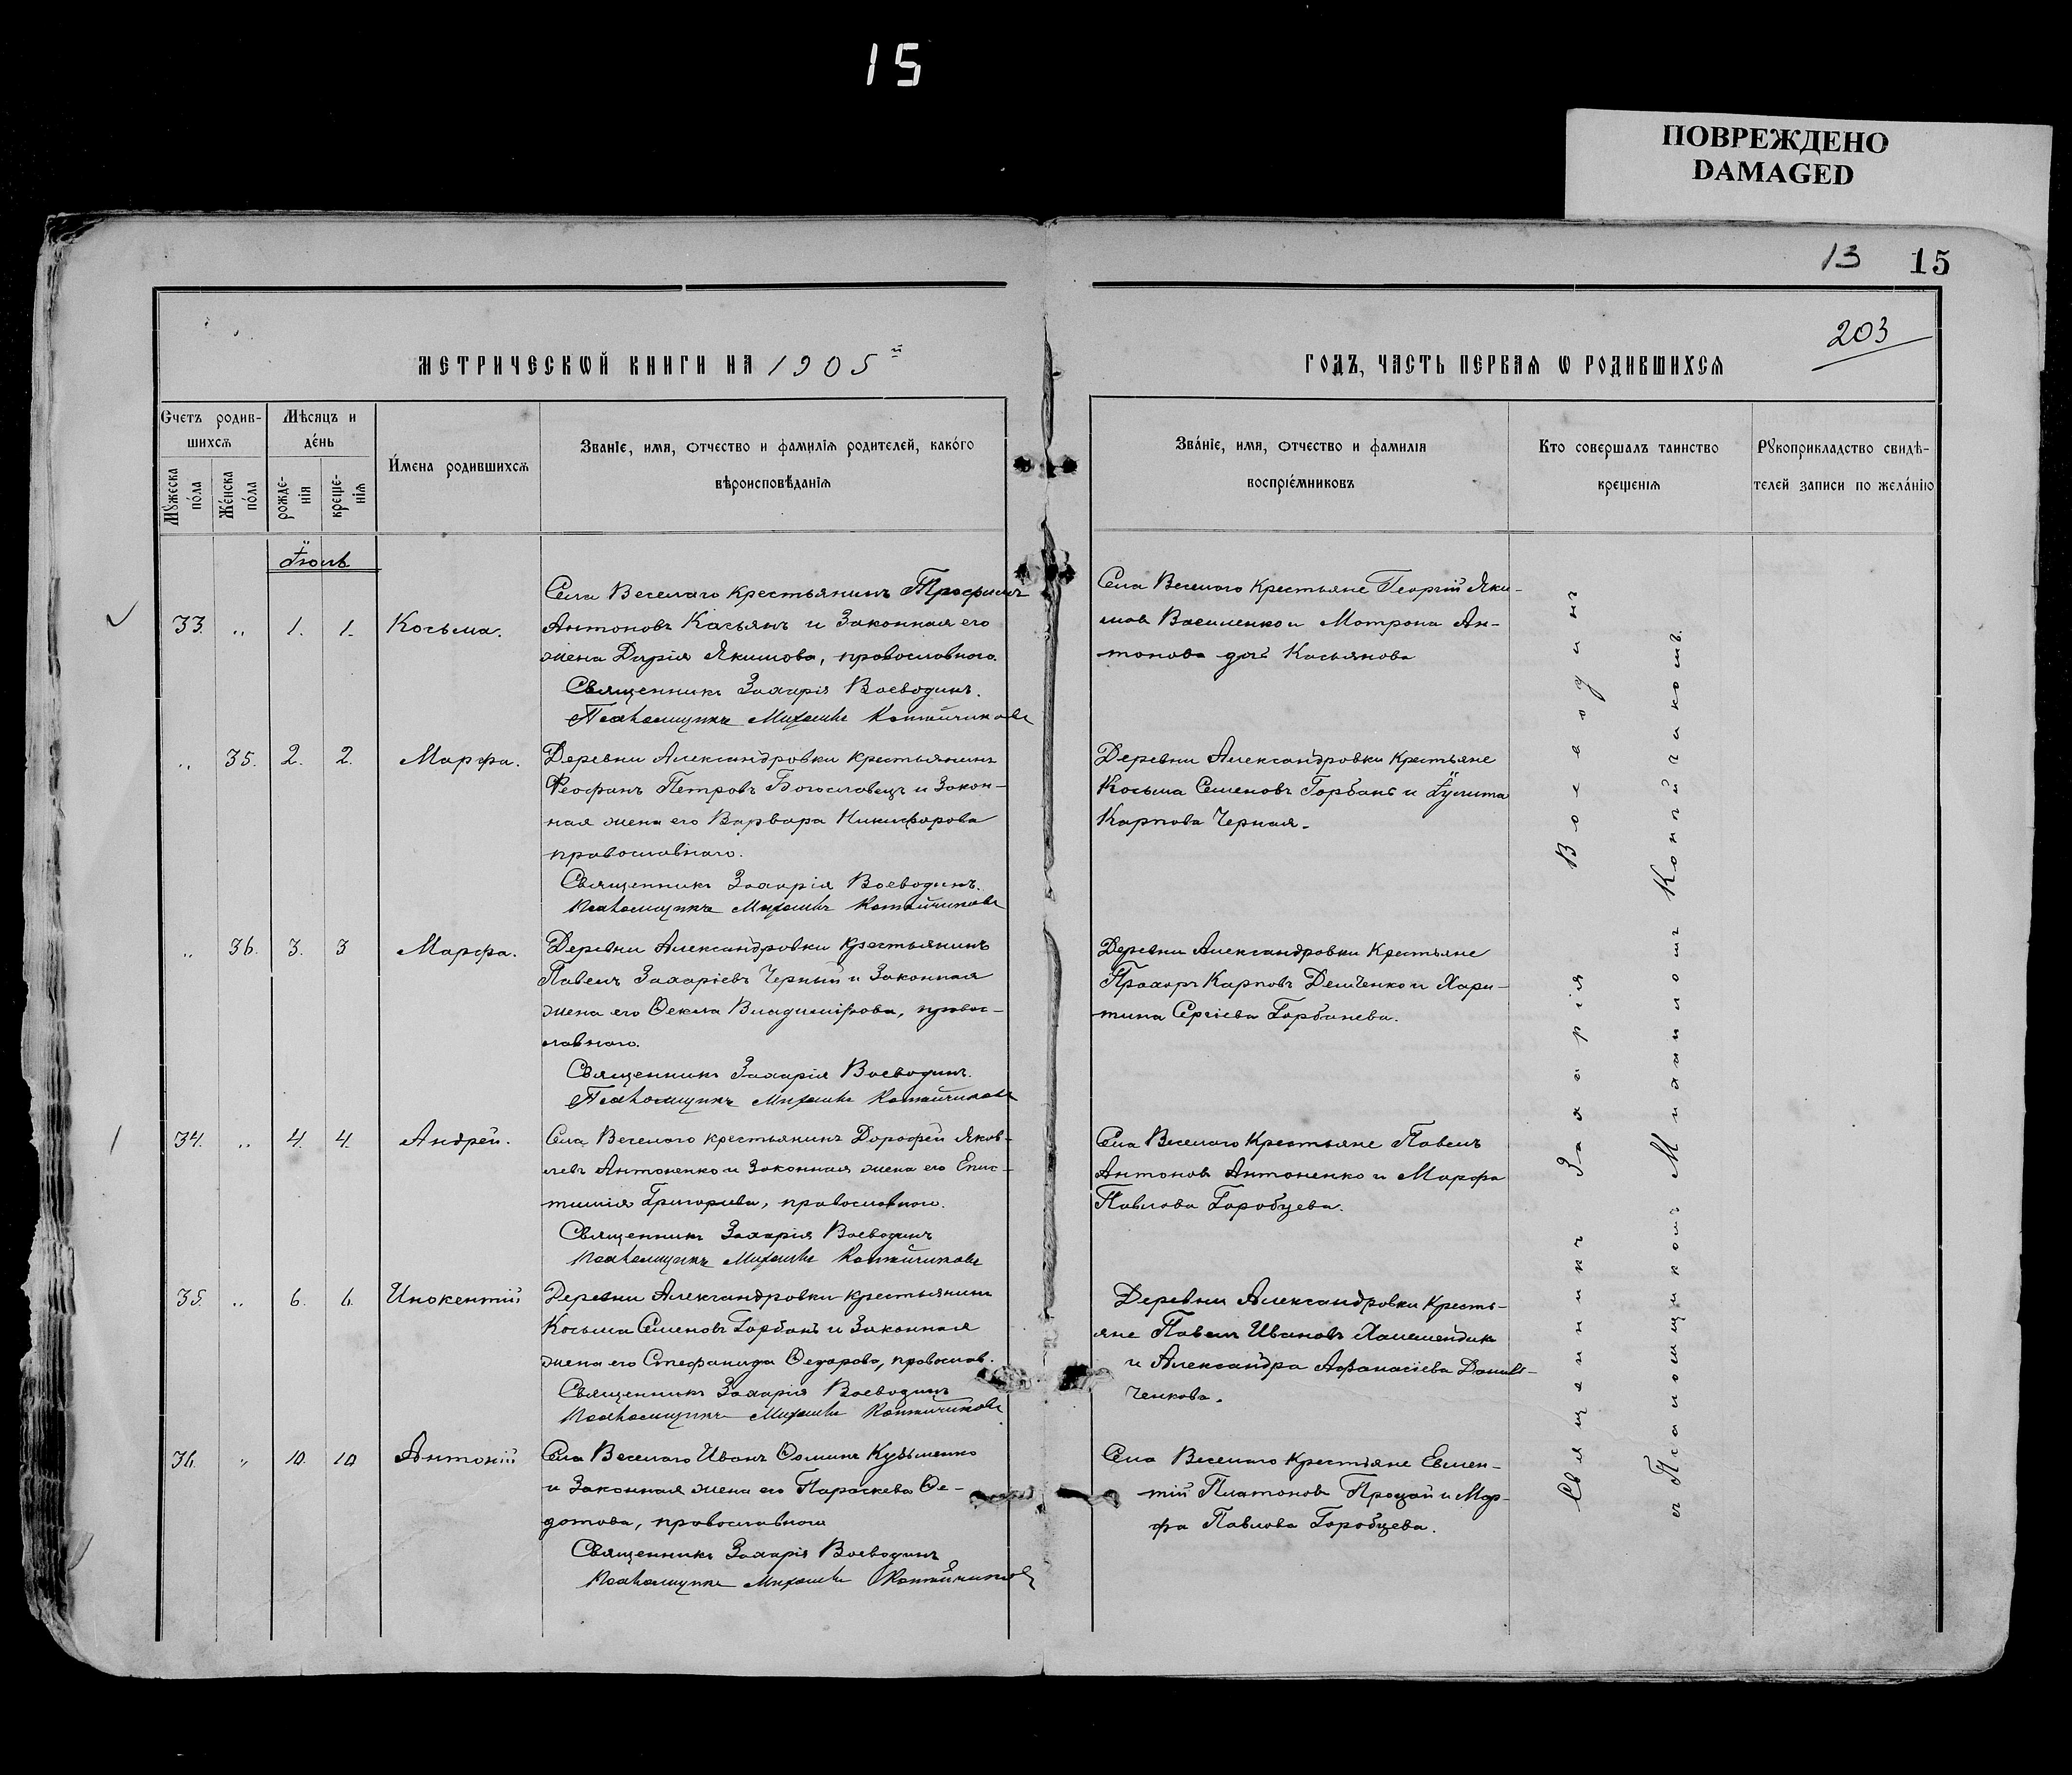 15
ПОВРЕЖДЕНО
DAMAGED
13 15
203
МЕТРИЧЕСКѠЙ КНИГИ НА 1905й
ГОДЪ, ЧАСТЬ ПЕРВАѦ Ѡ РОДИВШИХСѦ
Счетъ родив-
шихсѧ
Мѣсяцъ и
де́нь
Мꙋжеска
по́ла
Же́нска
по́ла
рожде-
нїя
креще-
нїя
И́мена родившихсѧ
Званїе, имя, отчество и фамилїя родителей, како́го
вѣроисповѣданїя
Зва́нїе, имя, отчество и фамилія
воспрїе́мниковъ
Кто совершалъ таинство
крещенїя
Рꙋкоприкладство свидѣ-
телей записи по жела́нїю
Іюль
33. „ 1. 1. Косьма.
Села Веселаго крестьянинъ Трофимъ
Антоновъ Касьянъ и законная его
жена Дарія Якимова, православнаго.
Священникъ Захарія Воеводинъ.
Псаломщикъ Михаилъ
Села Веселаго крестьяне Георгій Яки-
мовъ Василенко и Мотрона Ан-
тонова доч Касьянова
„ 35. 2. 2. Марфа.
Деревни Александровки крестьянинъ
Феофанъ Петровъ Богословецъ и закон-
ная жена его Варвара Никифорова
православнаго.
Священникъ Захарія Воеводинъ.
Псаломщикъ Михаилъ
Деревни Александровки крестьяне
Косьма Семеновъ Горбань и Іулита
Карпова Черная.
„ 36. 3. 3 Марфа.
Деревни Александровки крестьянинъ
Павелъ Захаріевъ Черный и законная
жена его Ѳекла Владимірова, правос-
лавнаго.
Священникъ Захарія Воеводинъ.
Псаломщикъ Михаилъ
Деревни Александровки крестьяне
Прохоръ Карповъ Демченко и Хари-
тина Сергіева Горбанева.
34. „ 4. 4. Андрей.
Села Веселаго крестьянинъ Дорофей Яков-
левъ Антоненко и законная жена его Епис-
тимія Григориева, православнаго.
Священникъ Захарія Воеводинъ
Псаломщикъ Михаилъ
Села Веселаго крестьяне Павелъ
Антоновъ Антоненко и Марфа
Павлова Горобцева.
35. „ 6. 6. Инокентій
Деревни Александровки крестьянинъ
Косьма Семеновъ Горбань и законная
жена его Стефанида Ѳедорова, православ.
Священникъ Захарія Воеводинъ
Псаломщикъ Михаилъ
Деревни Александровки кресть-
яне Павелъ Ивановъ
и Александра Афанасіева Данил-
ченкова.
36. „ 10. 10 Антоній
Села Веселаго Иванъ Ѳоминъ Кузьменко
и законная жена его Параскева Ѳе-
дотова, православнаго
Священникъ Захарія Воеводинъ
Псаломщикъ Михаилъ
Села Веселаго крестьяне Евмен-
тій Платоновъ Процай и Мар-
фа Павлова Горобцева.
Священникъ Захарія Воеводинъ
съ Псаломщикомъ Михаиломъ